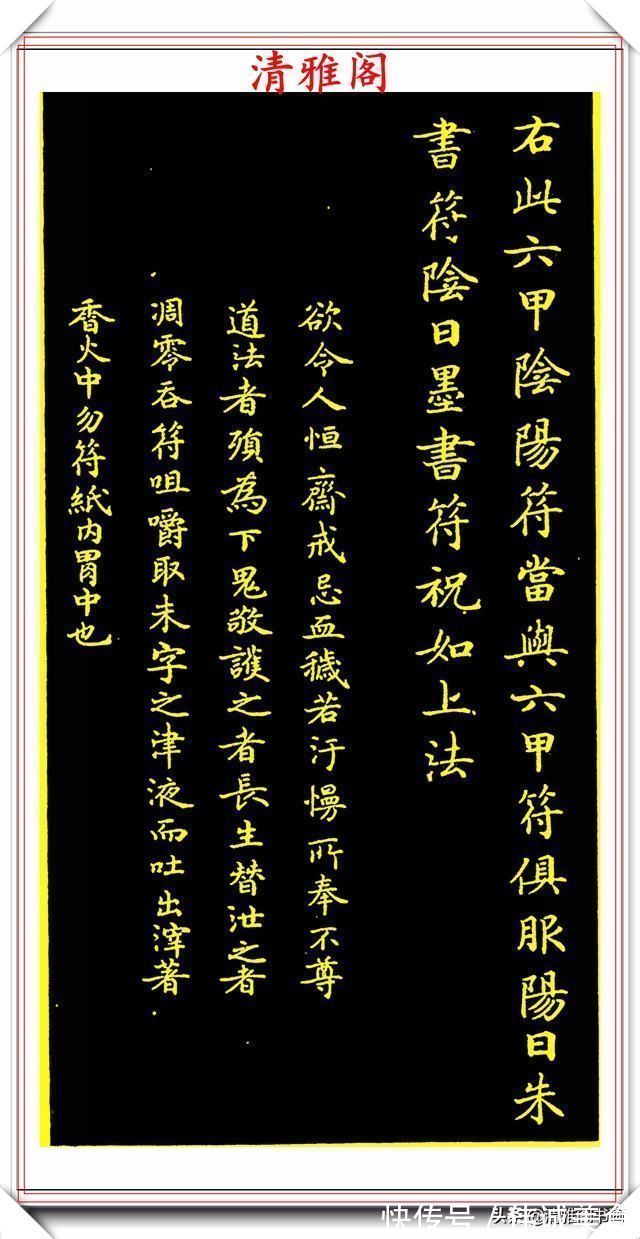 清雅阁
右此六甲陰陽符當與六甲符俱服陽日朱
書符陰日墨書符祝如上法
欲令人恒齋戒忌血穢若汙慢所奉不尊
道法者須為下鬼敬護之者長生替泄之者
凋零吞符咀嚼取朱字之津液而吐出滓著
香火中勿符紙內胃中也
快传号